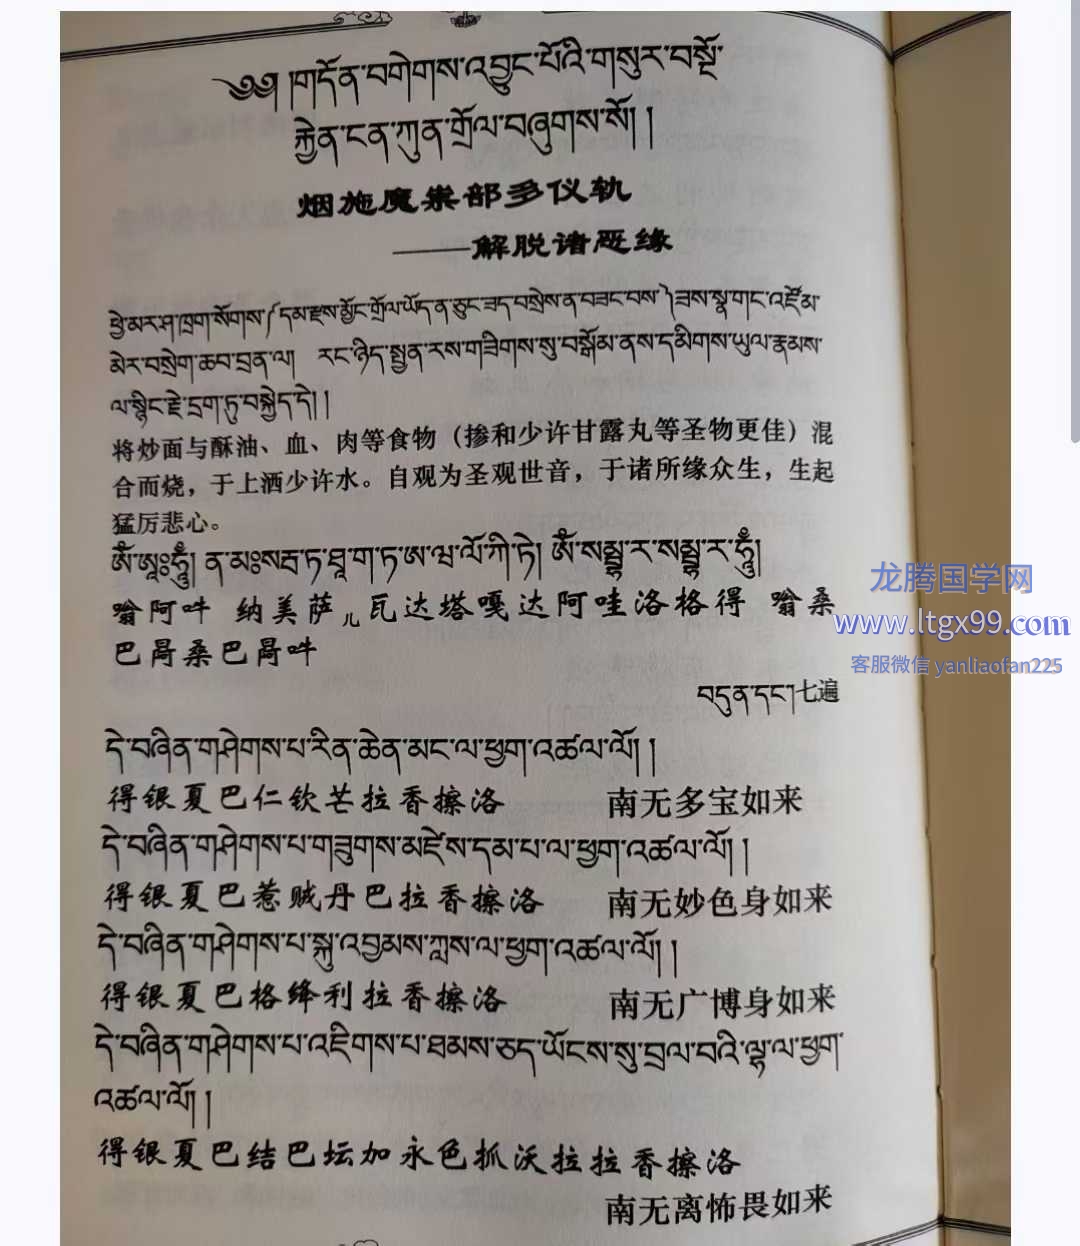 ༄༅། །གདོན་བགེགས་འབྱུང་པོའི་གསུར་བསྔོ་
རྐྱེན་ངན་ཀུན་གྲོལ་བཞུགས་སོ། །
烟施魔祟部多仪轨
——解脱诸恶缘
ཕྱེ་མར་ཤ་ཁྲག་སོགས་(དམ་རྫས་མྱོང་གྲོལ་ཡོད་ན་ཅུང་ཟད་བསྲེས་ན་བཟང་བས་)ཟས་སྣ་གང་འཛོམ་
མེར་བསྲེག་ཆབ་བྲན་ལ། རང་ཉིད་སྤྱན་རས་གཟིགས་སུ་བསྒོམ་ནས་དམིགས་ཡུལ་རྣམས་
ལ་སྙིང་རྗེ་དྲག་ཏུ་བསྐྱེད་དེ། །
将炒面与酥油、血、肉等食物（掺和少许甘露丸等圣物更佳）混
合而烧，于上洒少许水。自观为圣观世音，于诸所缘众生，生起
猛厉悲心。
ཨོཾ་ཨཱཿཧཱུྃ། ན་མཿསརྦ་ཏ་ཐཱ་ག་ཏ་ཨ་ཝ་ལོ་ཀི་ཏེ། ཨོཾ་སམྦྷ་ར་སམྦྷ་ར་ཧཱུྃ།
嗡阿吽 纳美萨儿瓦达塔嘎达阿哇洛格得 嗡桑
巴昺桑巴昺吽
བདུན་དང་།七遍
དེ་བཞིན་གཤེགས་པ་རིན་ཆེན་མང་ལ་ཕྱག་འཚལ་ལོ། །
得银夏巴仁钦芒拉香擦洛 南无多宝如来
དེ་བཞིན་གཤེགས་པ་གཟུགས་མཛེས་དམ་པ་ལ་ཕྱག་འཚལ་ལོ། །
得银夏巴惹贼丹巴拉香擦洛 南无妙色身如来
དེ་བཞིན་གཤེགས་པ་སྐུ་འབྱམས་ཀླས་ལ་ཕྱག་འཚལ་ལོ། །
得银夏巴格绛利拉香擦洛 南无广博身如来
དེ་བཞིན་གཤེགས་པ་འཇིགས་པ་ཐམས་ཅད་ཡོངས་སུ་བྲལ་བའི་ལྷ་ལ་ཕྱག་
འཚལ་ལོ། །
得银夏巴结巴坛加永色抓沃拉拉香擦洛
南无离怖畏如来
龙腾国学网
www.ltgx99.com
客服微信 yanliaofan225